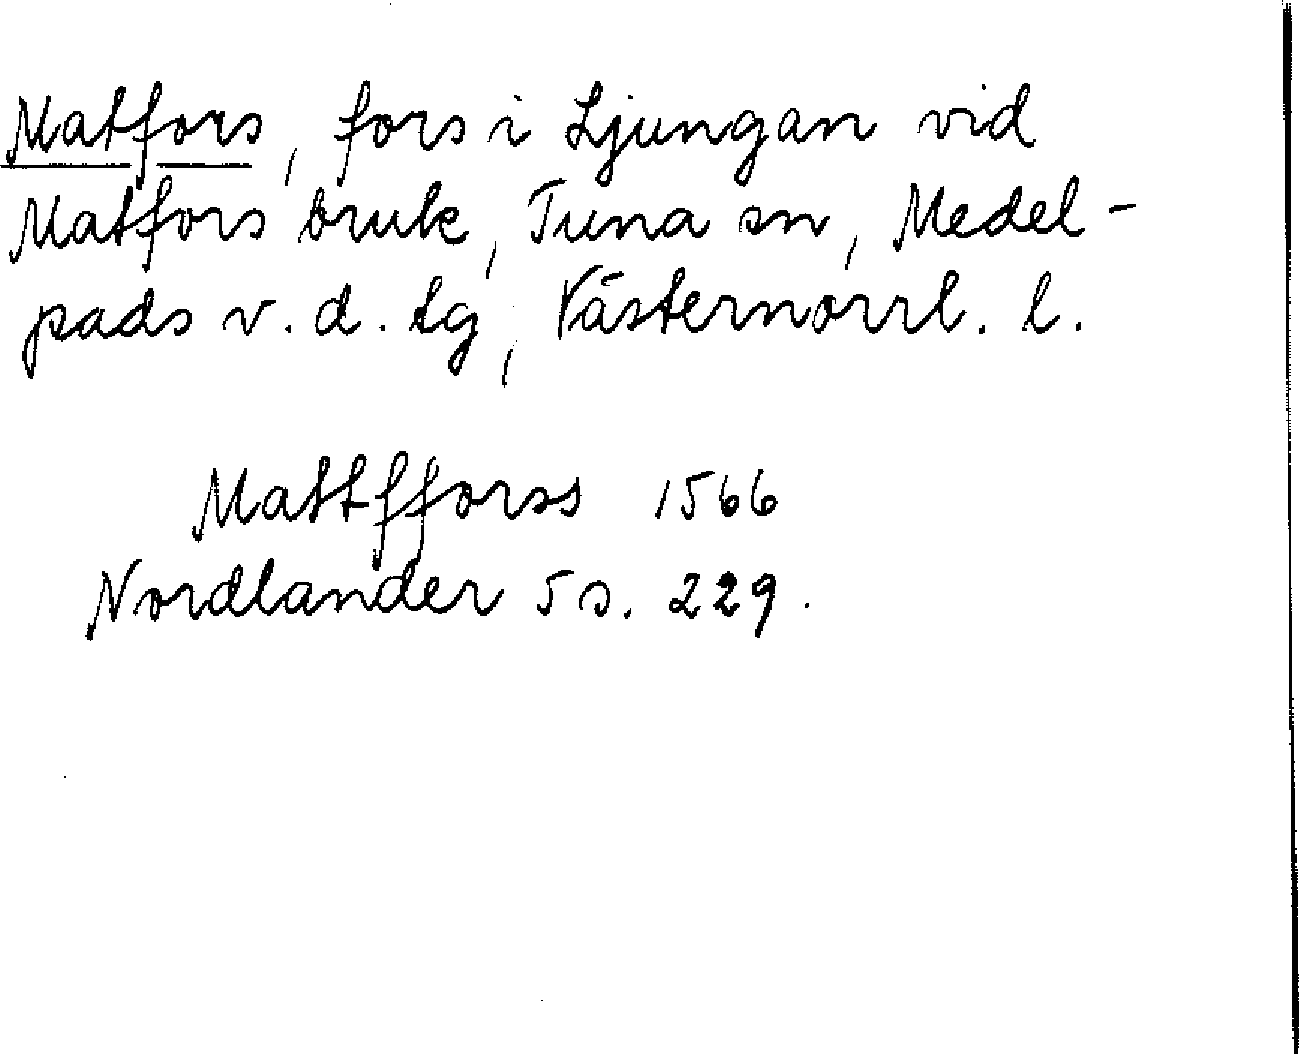 Matfors, fors i Ljungan vid
Matfors bruk, Tuna sn, Medel-
pads v. d. tg, Västernorrl. l.
Mattfforss 1566
Nordlander 5 s. 229.